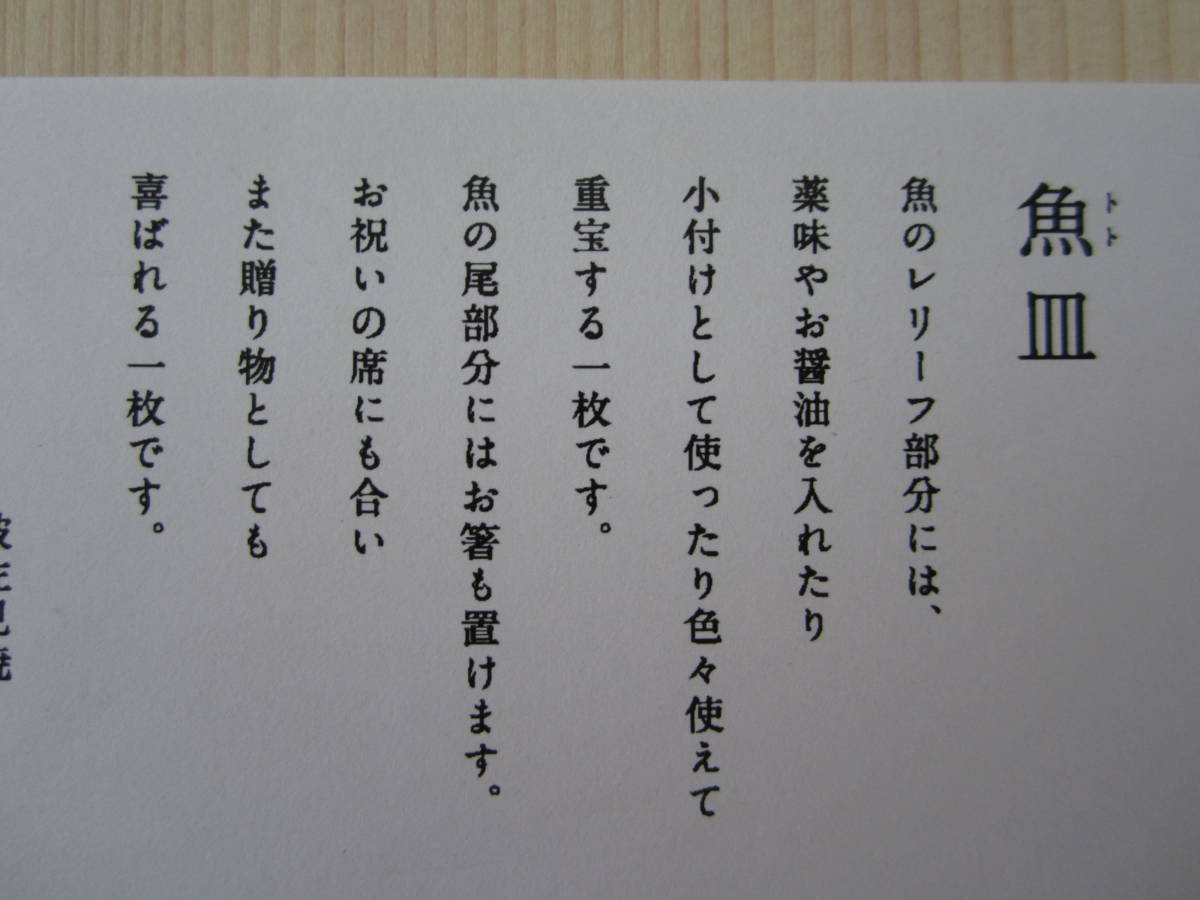 魚皿
トト
魚のレリーフ部分には、
薬味やお醤油を入れたり
小付けとして使ったり色々使えて
重宝する一枚です。
魚の尾部分にはお箸も置けます。
お祝いの席にも合い
また贈り物としても
喜ばれる一枚です。
波佐見焼